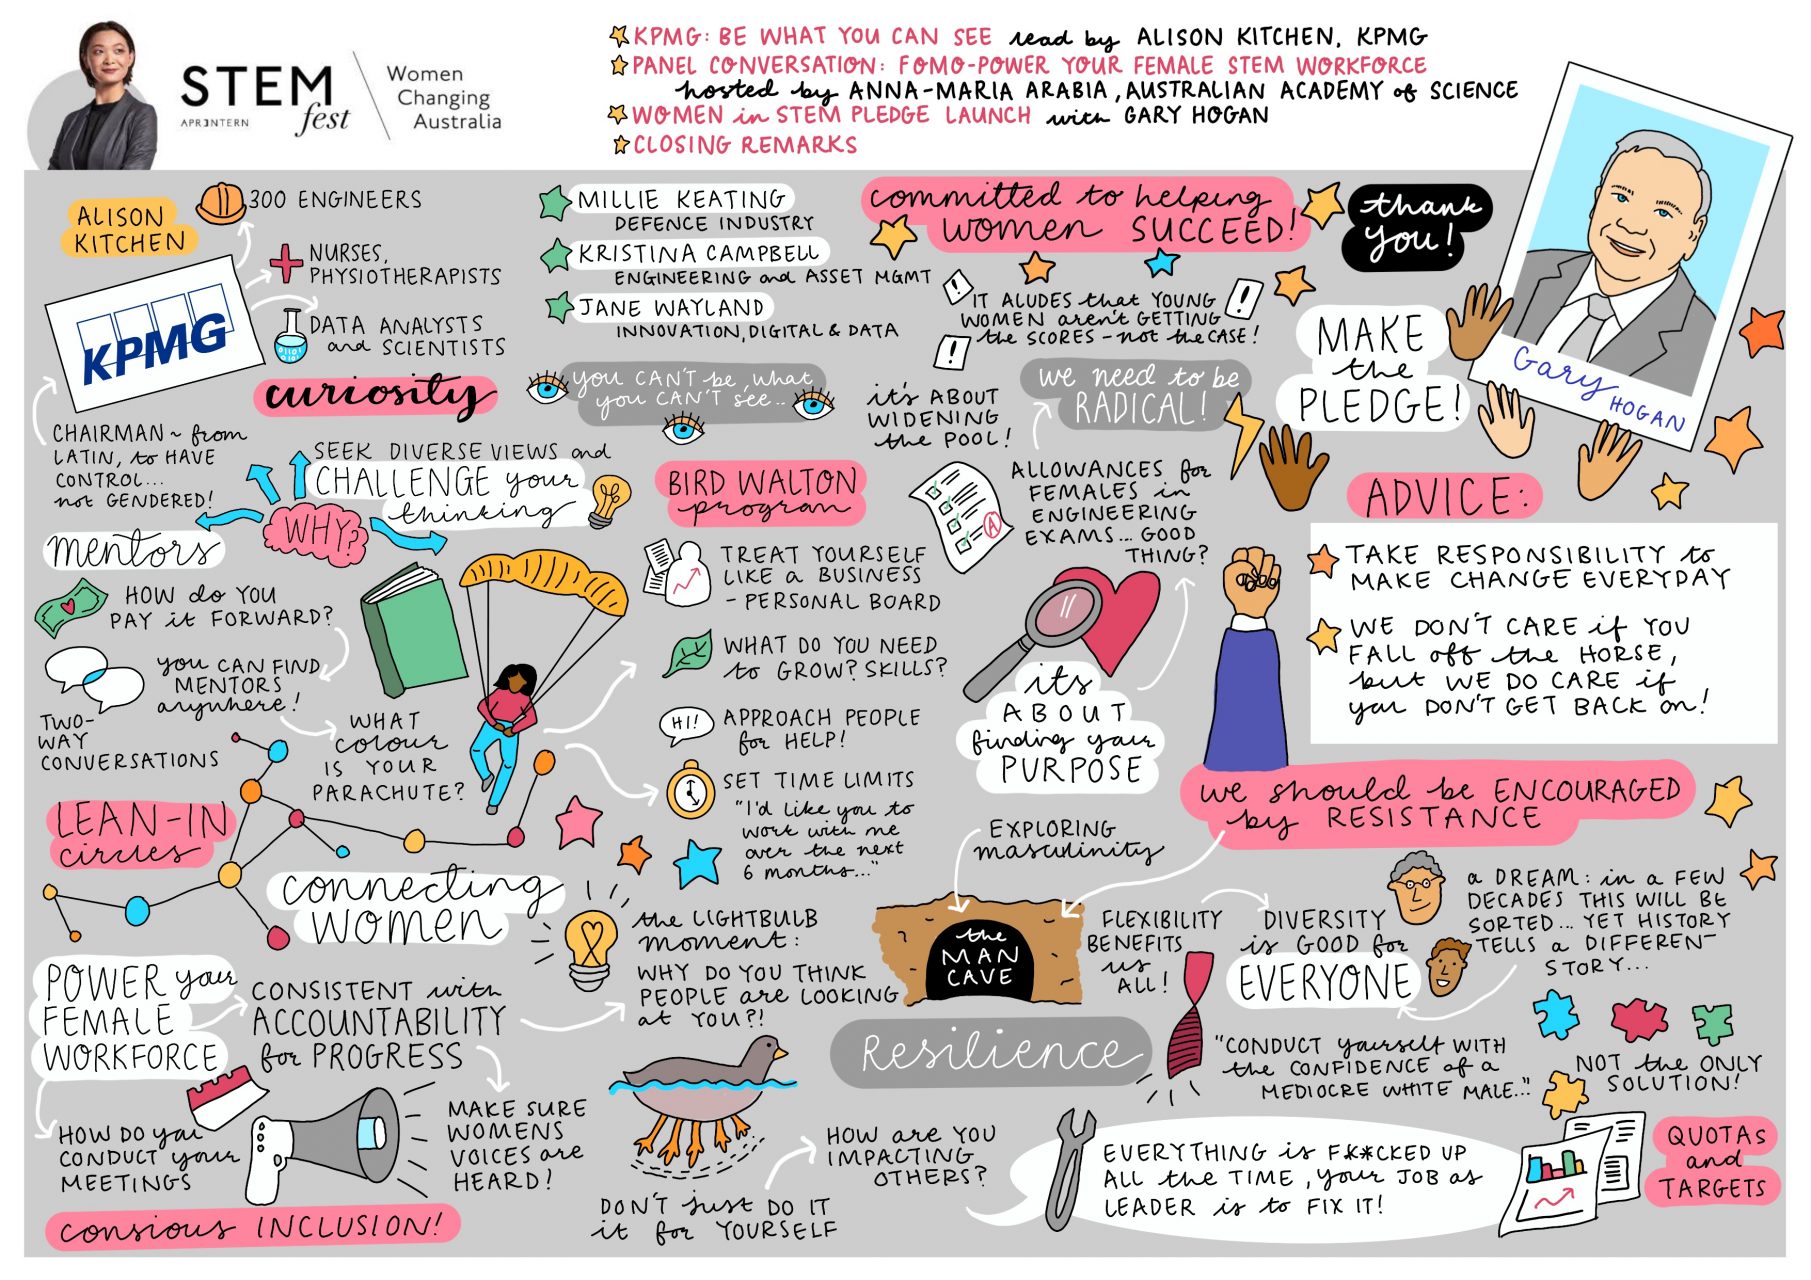 STEM
APR3NTERN
fest
Women
Changing
Australia
KPMG: BE WHAT YOU CAN SEE read by ALISON KITCHEN, KPMG
PANEL CONVERSATION: FOMO-POWER YOUR FEMALE STEM WORKFORCE
hosted by ANNA-MARIA ARABIA, AUSTRALIAN ACADEMY of SCIENCE
WOMEN in STEM PLEDGE LAUNCH with GARY HOGAN
CLOSING REMARKS
ALISON
KITCHEN
300 ENGINEERS
NURSES,
PHYSIOTHERAPISTS
DATA ANALYSTS
and SCIENTISTS
KPMG
CHAIRMAN ~ from
LATIN, to HAVE
CONTROL...
not GENDERED!
MILLIE KEATING
DEFENCE INDUSTRY
KRISTINA CAMPBELL
ENGINEERING and ASSET MGMT
JANE WAYLAND
INNOVATION, DIGITAL & DATA
curiosity
you CAN'T be, what
you CAN'T see...
SEEK DIVERSE VIEWS and
CHALLENGE your
thinking
WHY?
mentors
HOW do YOU
PAY it FORWARD?
you CAN FIND
MENTORS
anywhere!
TWO-
WAY
CONVERSATIONS
WHAT
colour
IS YOUR
PARACHUTE?
BIRD WALTON
program
TREAT YOURSELF
LIKE a BUSINESS
- PERSONAL BOARD
WHAT DO YOU NEED
to GROW? SKILLS?
HI!
APPROACH PEOPLE
for HELP!
SET TIME LIMITS
"I'd like you to
work with me
over the next
6 months..."
LEAN-IN
circles
connecting
WOMEN
the LIGHTBULB
moment:
WHY DO YOU THINK
PEOPLE are LOOKING
at YOU?!
POWER your
FEMALE
WORKFORCE
CONSISTENT with
ACCOUNTABILITY
for PROGRESS
HOW DO you
CONDUCT your
MEETINGS
MAKE SURE
WOMENS
VOICES are
HEARD!
consious INCLUSION!
DON'T just DO IT
it for YOURSELF
HOW are YOU
IMPACTING
OTHERS?
committed to helping
women SUCCEED!
thank
you!
IT ALUDES that YOUNG
WOMEN aren't GETTING
the SCORES - not the CASE!
!
!
!
it's ABOUT
WIDENING
the POOL!
we need to be
RADICAL!
ALLOWANCES for
FEMALES in
ENGINEERING
EXAMS... GOOD
THING?
A
its
ABOUT
finding your
PURPOSE
MAKE
the
PLEDGE!
Gary
HOGAN
ADVICE:
TAKE RESPONSIBILITY to
MAKE CHANGE EVERYDAY
WE DON'T CARE if YOU
FALL off the HORSE,
but WE DO CARE if
you DON'T GET BACK on!
we should be ENCOURAGED
by RESISTANCE
EXPLORING
masculinity
the
MAN
CAVE
FLEXIBILITY
BENEFITS
us
ALL!
DIVERSITY
is GOOD for
EVERYONE
a DREAM: in a FEW
DECADES THIS WILL BE
SORTED... YET HISTORY
TELLS a DIFFEREN-
STORY...
Resilience
"CONDUCT yourself WITH
the CONFIDENCE of a
MEDIOCRE WHITE MALE..."
NOT the ONLY
SOLUTION!
EVERYTHING is F**CKED UP
ALL the TIME, your JOB as
LEADER is to FIX IT!
QUOTAs
and
TARGETS